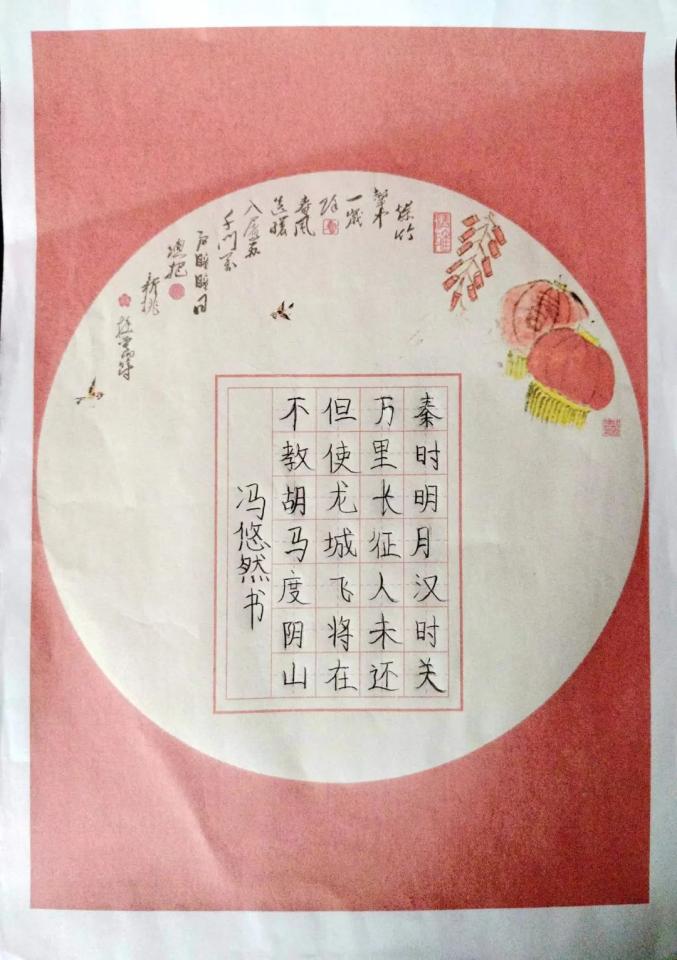 秦时明月汉时关
万里长征人未还
但使龙城飞将在
不教胡马度阴山
冯悠然书
爆竹
声中
一岁
除
春风
送暖
入屠苏
千门万
户曈曈日
总把
新桃
换旧符